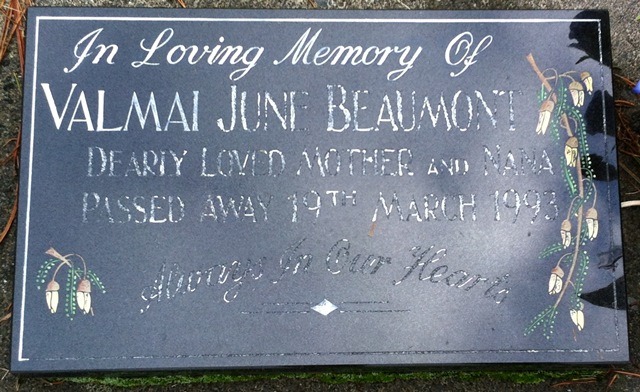 In Loving Memory Of
VALMAI JUNE BEAUMONT
DEARLY LOVED MOTHER AND NANA
PASSED AWAY 19TH MARCH 1993
Always In Our Hearts